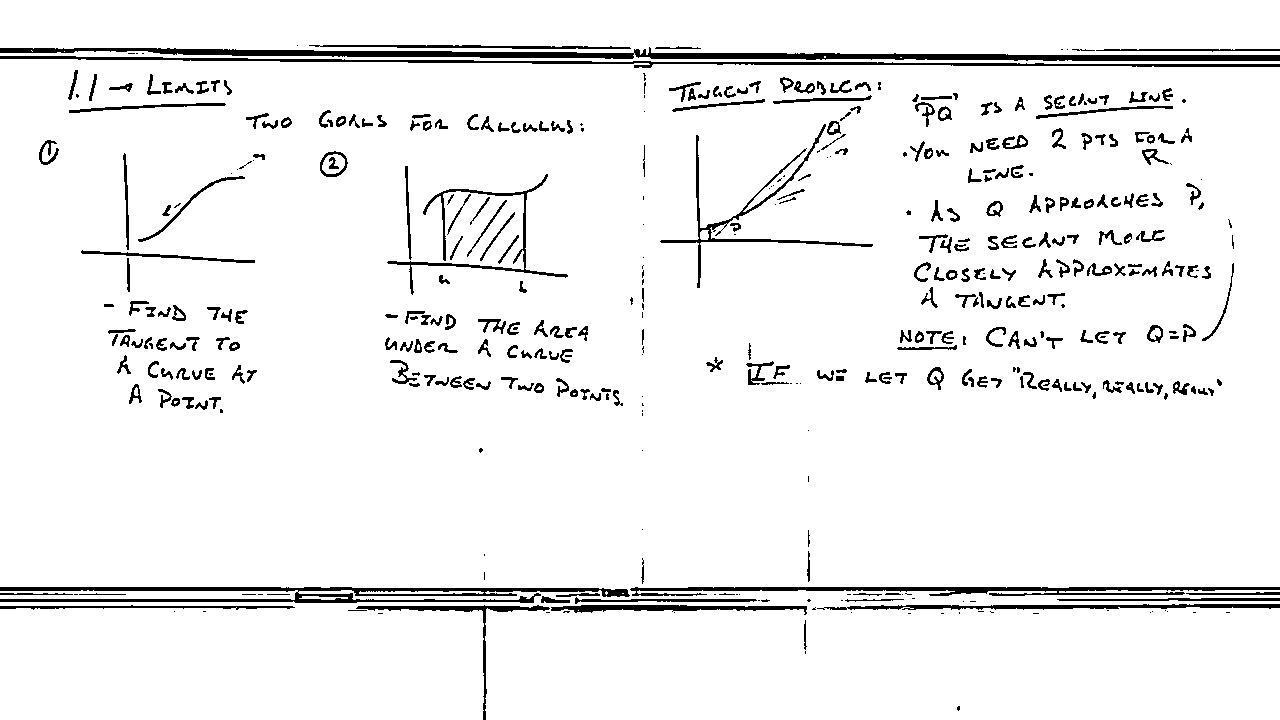 1.1 → LIMITS
TWO GOALS FOR CALCULUS:
①
- FIND THE
TANGENT TO
A CURVE AT
A POINT.
②
a b
- FIND THE AREA
UNDER A CURVE
BETWEEN TWO POINTS.
TANGENT PROBLEM:
Q
P
PQ IS A SECANT LINE.
• YOU NEED 2 PTS FOR A
LINE.
• AS Q APPROACHES P,
THE SECANT MORE
CLOSELY APPROXIMATES
A TANGENT.
NOTE: CAN'T LET Q=P
* IF WE LET Q GET "REALLY, REALLY, REALLY"